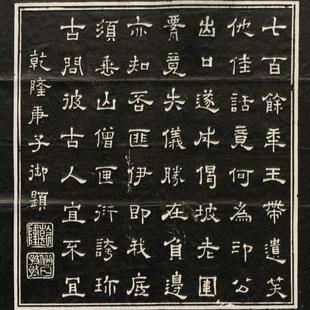 七百餘年玉帶遺笑
他佳話竟何為印公
出口遂成偈坡老圍
腰竟失儀勝在負邊
亦知否匪伊即我底
須垂山僧匣衍誇珎
古問彼古人宜不宜
乾隆庚子御題